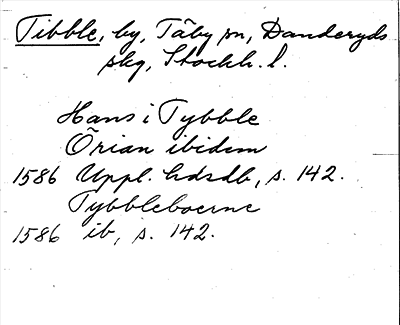 Tibble, by, Täby sn, Danderyds
skg, Stockh. l.
Hans i Tybble
Örian ibidem
1586 Uppl. hdsdb, s. 142.
Tybbleboerne
1586 ib, s. 142.